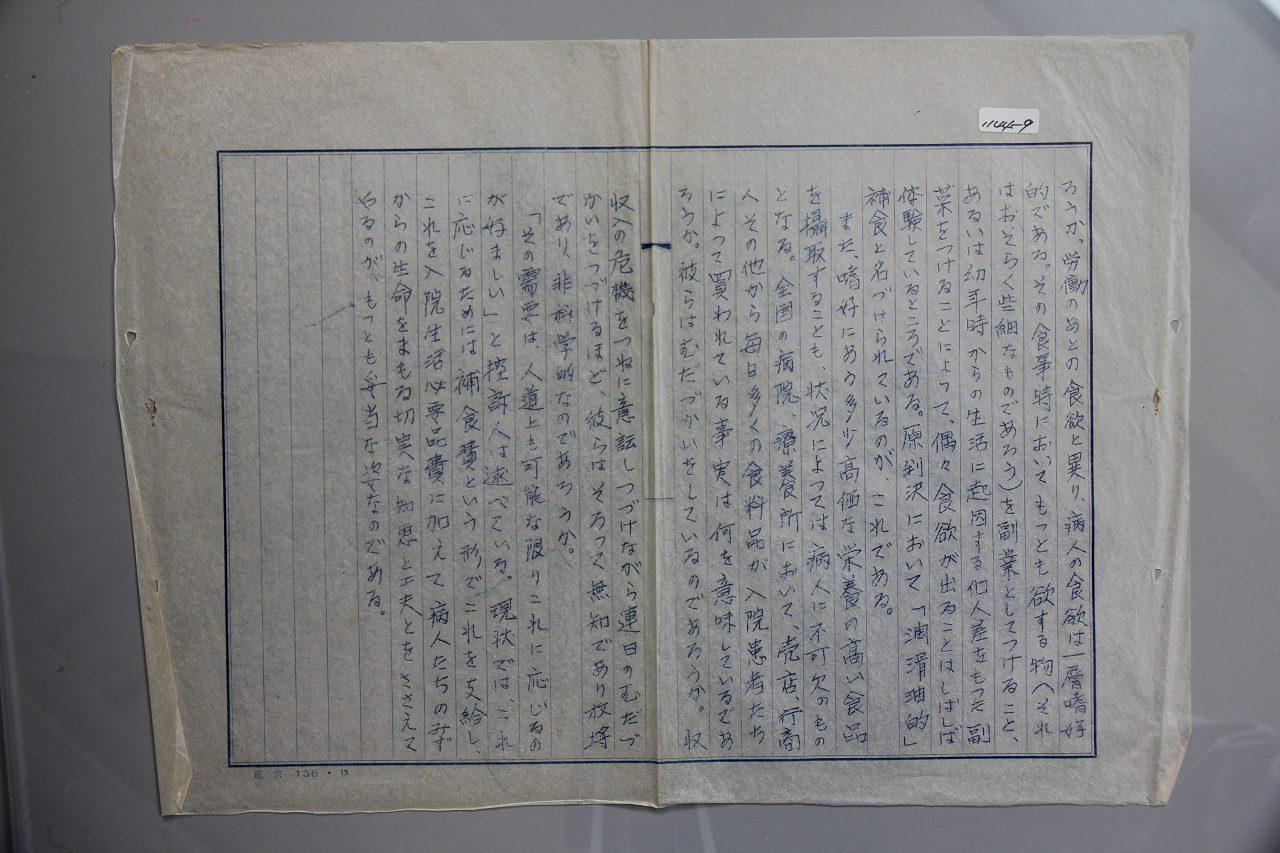 1144-9
ろうか。労働のあとの食欲と異り、病人の食欲は一層嗜好
的である。その食事時においてもっとも欲する物(それ
はおそらく些細なものであろう)を副菜としてつけること、
あるいは幼年時からの生活に起因する個人差をもった副
菜をつけることによって、偶々食欲が出ることはしばしば
体験しているところである。原判決において「潤滑油的」
補食と名づけられているのが、これである。
また、嗜好にあう多少高価な栄養の高い食品
を攝取することも、状況によっては病人に不可欠のもの
となる。全国の病院、療養所において、売店、行商
人その他から毎日多くの食料品が入院患者たち
によって買われている事実は何を意味しているであ
ろうか。彼らはむだづかいをしているのであろうか。収
収入の危機をつねに意識しつづけながら連日のむだづ
かいをつづけるほど、彼らはそろって無知であり放埓
であり、非科学的なのであろうか。
「その需要は、人道上も可能な限りこれに応じるの
が好ましい」と控訴人は述べている。現状では、これ
に応じるためには補食費という形でこれを支給し、
これを入院生活必需品費に加えて、病人たちのみず
からの生命をまもる切実な知恵と工夫とをささえて
やるのが、もっとも妥当な姿なのである。
13行・13